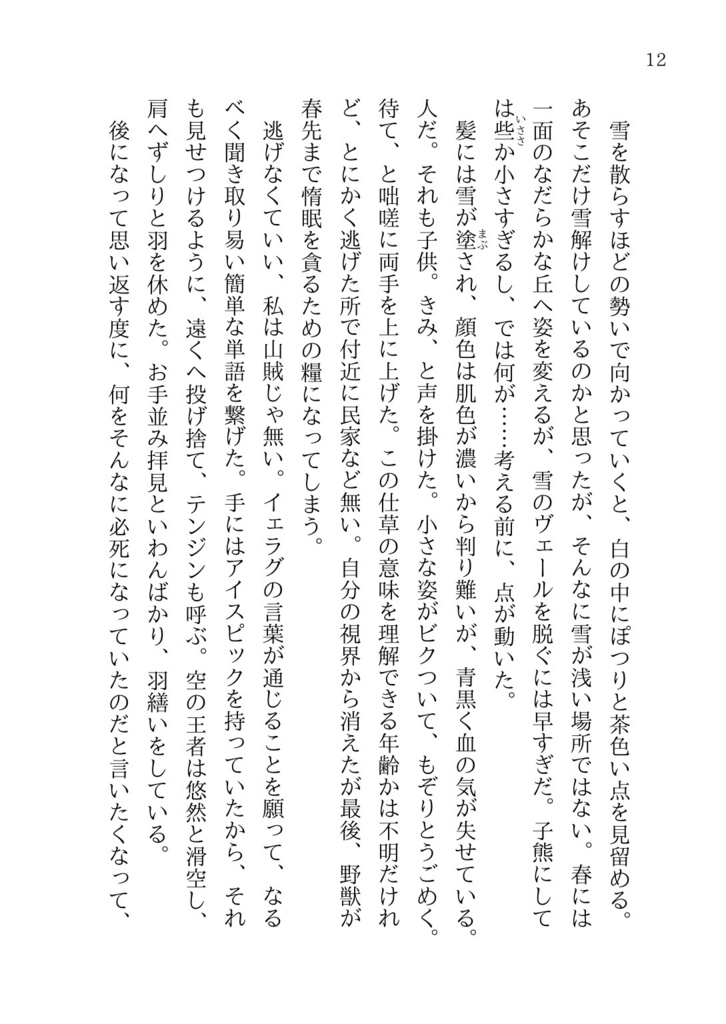 12
雪を散らすほどの勢いで向かっていくと、白の中にぽつりと茶色い点を見留める。
あそこだけ雪解けしているのかと思ったが、そんなに雪が浅い場所ではない。春には
一面のなだらかな丘へ姿を変えるが、雪のヴェールを脱ぐには早すぎだ。子熊にして
は些か小さすぎるし、では何が……考える前に、点が動いた。
いささ
髪には雪が塗され、顔色は肌色が濃いから判り難いが、青黒く血の気が失せている。
まぶ
人だ。それも子供。きみ、と声を掛けた。小さな姿がビクついて、もぞりとうごめく。
待て、と咄嗟に両手を上に上げた。この仕草の意味を理解できる年齢かは不明だけれ
ど、とにかく逃げた所で付近に民家など無い。自分の視界から消えたが最後、野獣が
春先まで惰眠を貪るための糧になってしまう。
逃げなくていい、私は山賊じゃ無い。イェラグの言葉が通じることを願って、なる
べく聞き取り易い簡単な単語を繋げた。手にはアイスピックを持っていたから、それ
も見せつけるように、遠くへ投げ捨て、テンジンも呼ぶ。空の王者は悠然と滑空し、
肩へずしりと羽を休めた。お手並み拝見といわんばかり、羽繕いをしている。
後になって思い返す度に、何をそんなに必死になっていたのだと言いたくなって、